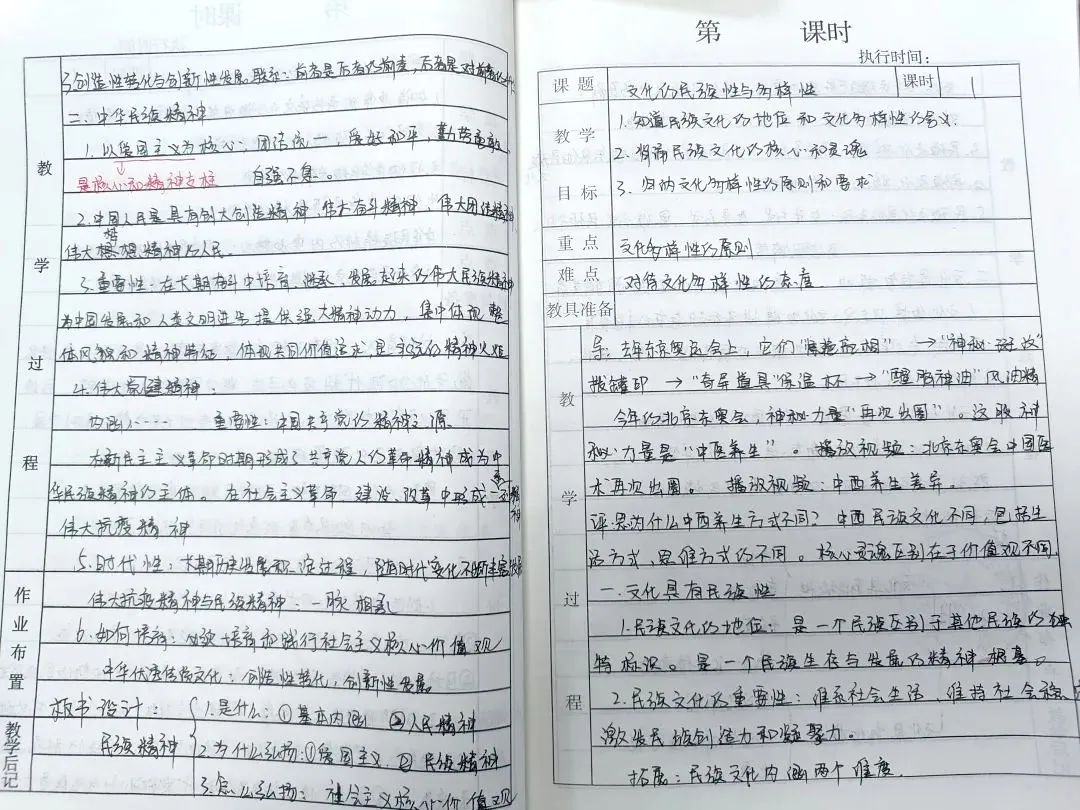 教学过程
3创造性转化与创新性发展联系：前者是后者的前提，后者是对前者的
二、中华民族精神
1. 以爱国主义为核心：团结统一，爱好和平，勤劳勇敢
是核心和精神支柱 自强不息。
2.中国人民是具有伟大创造精神、伟大奋斗精神，伟大团结精神
伟大梦想精神的人民。
3.重要性：在长期奋斗中培育、继承、发展起来的伟大民族精神
为中国发展和人类文明进步提供强大精神动力，集中体现整
体风貌和精神特征，体现共同价值追求，是永远的精神火炬
4.伟大建党精神：
内涵：…… 重要性：中国共产党的精神之源
在新民主主义革命时期形成了共产党人的革命精神成为中
华民族精神的主体。在社会主义革命、建设、改革中形成
伟大抗疫精神
5.时代性：长期历史发展积淀过程，随时代变化不断丰富发展
伟大抗疫精神与民族精神：一脉相承
作业布置
6.如何培育：必须培育和践行社会主义核心价值观
中华优秀传统文化：创造性转化，创新性发展
板书设计：
民族精神
1.是什么：①基本内涵 ②人民精神
2.为什么弘扬：①爱国主义 ②民族精神
3.怎么弘扬：社会主义核心价值观
教学后记
第 课时
执行时间：
课题 文化的民族性与多样性 课时 1
教学目标
1.知道民族文化的地位和文化多样性的含义.
2.明确民族文化的核心和灵魂
3.归纳文化多样性的原则和要求
重点 文化多样性的原则
难点 对待文化多样性的态度
教具准备
教学过程
导：去年东京奥运会上，它们“惊艳亮相” → “神秘斑纹”
拔罐印 → “奇异道具”保温杯 → “醒脑神油”风油精
今年的北京冬奥会，神秘力量“再次出圈”。这股神
秘力量是“中医养生”。 播放视频：北京冬奥会中国医
术再次出圈。 播放视频：中西养生差异
评：思为什么中西养生方式不同？中西民族文化不同，包括生
活方式，思维方式的不同。核心灵魂区别在于价值观不同.
一.文化具有民族性
1.民族文化的地位：是一个民族区别于其他民族的独
特标识。是一个民族生存与发展的精神根基。
2.民族文化的重要性：维系社会生活、维持社会稳定
激发民族创造力和凝聚力。
拓展：民族文化内涵两个维度.